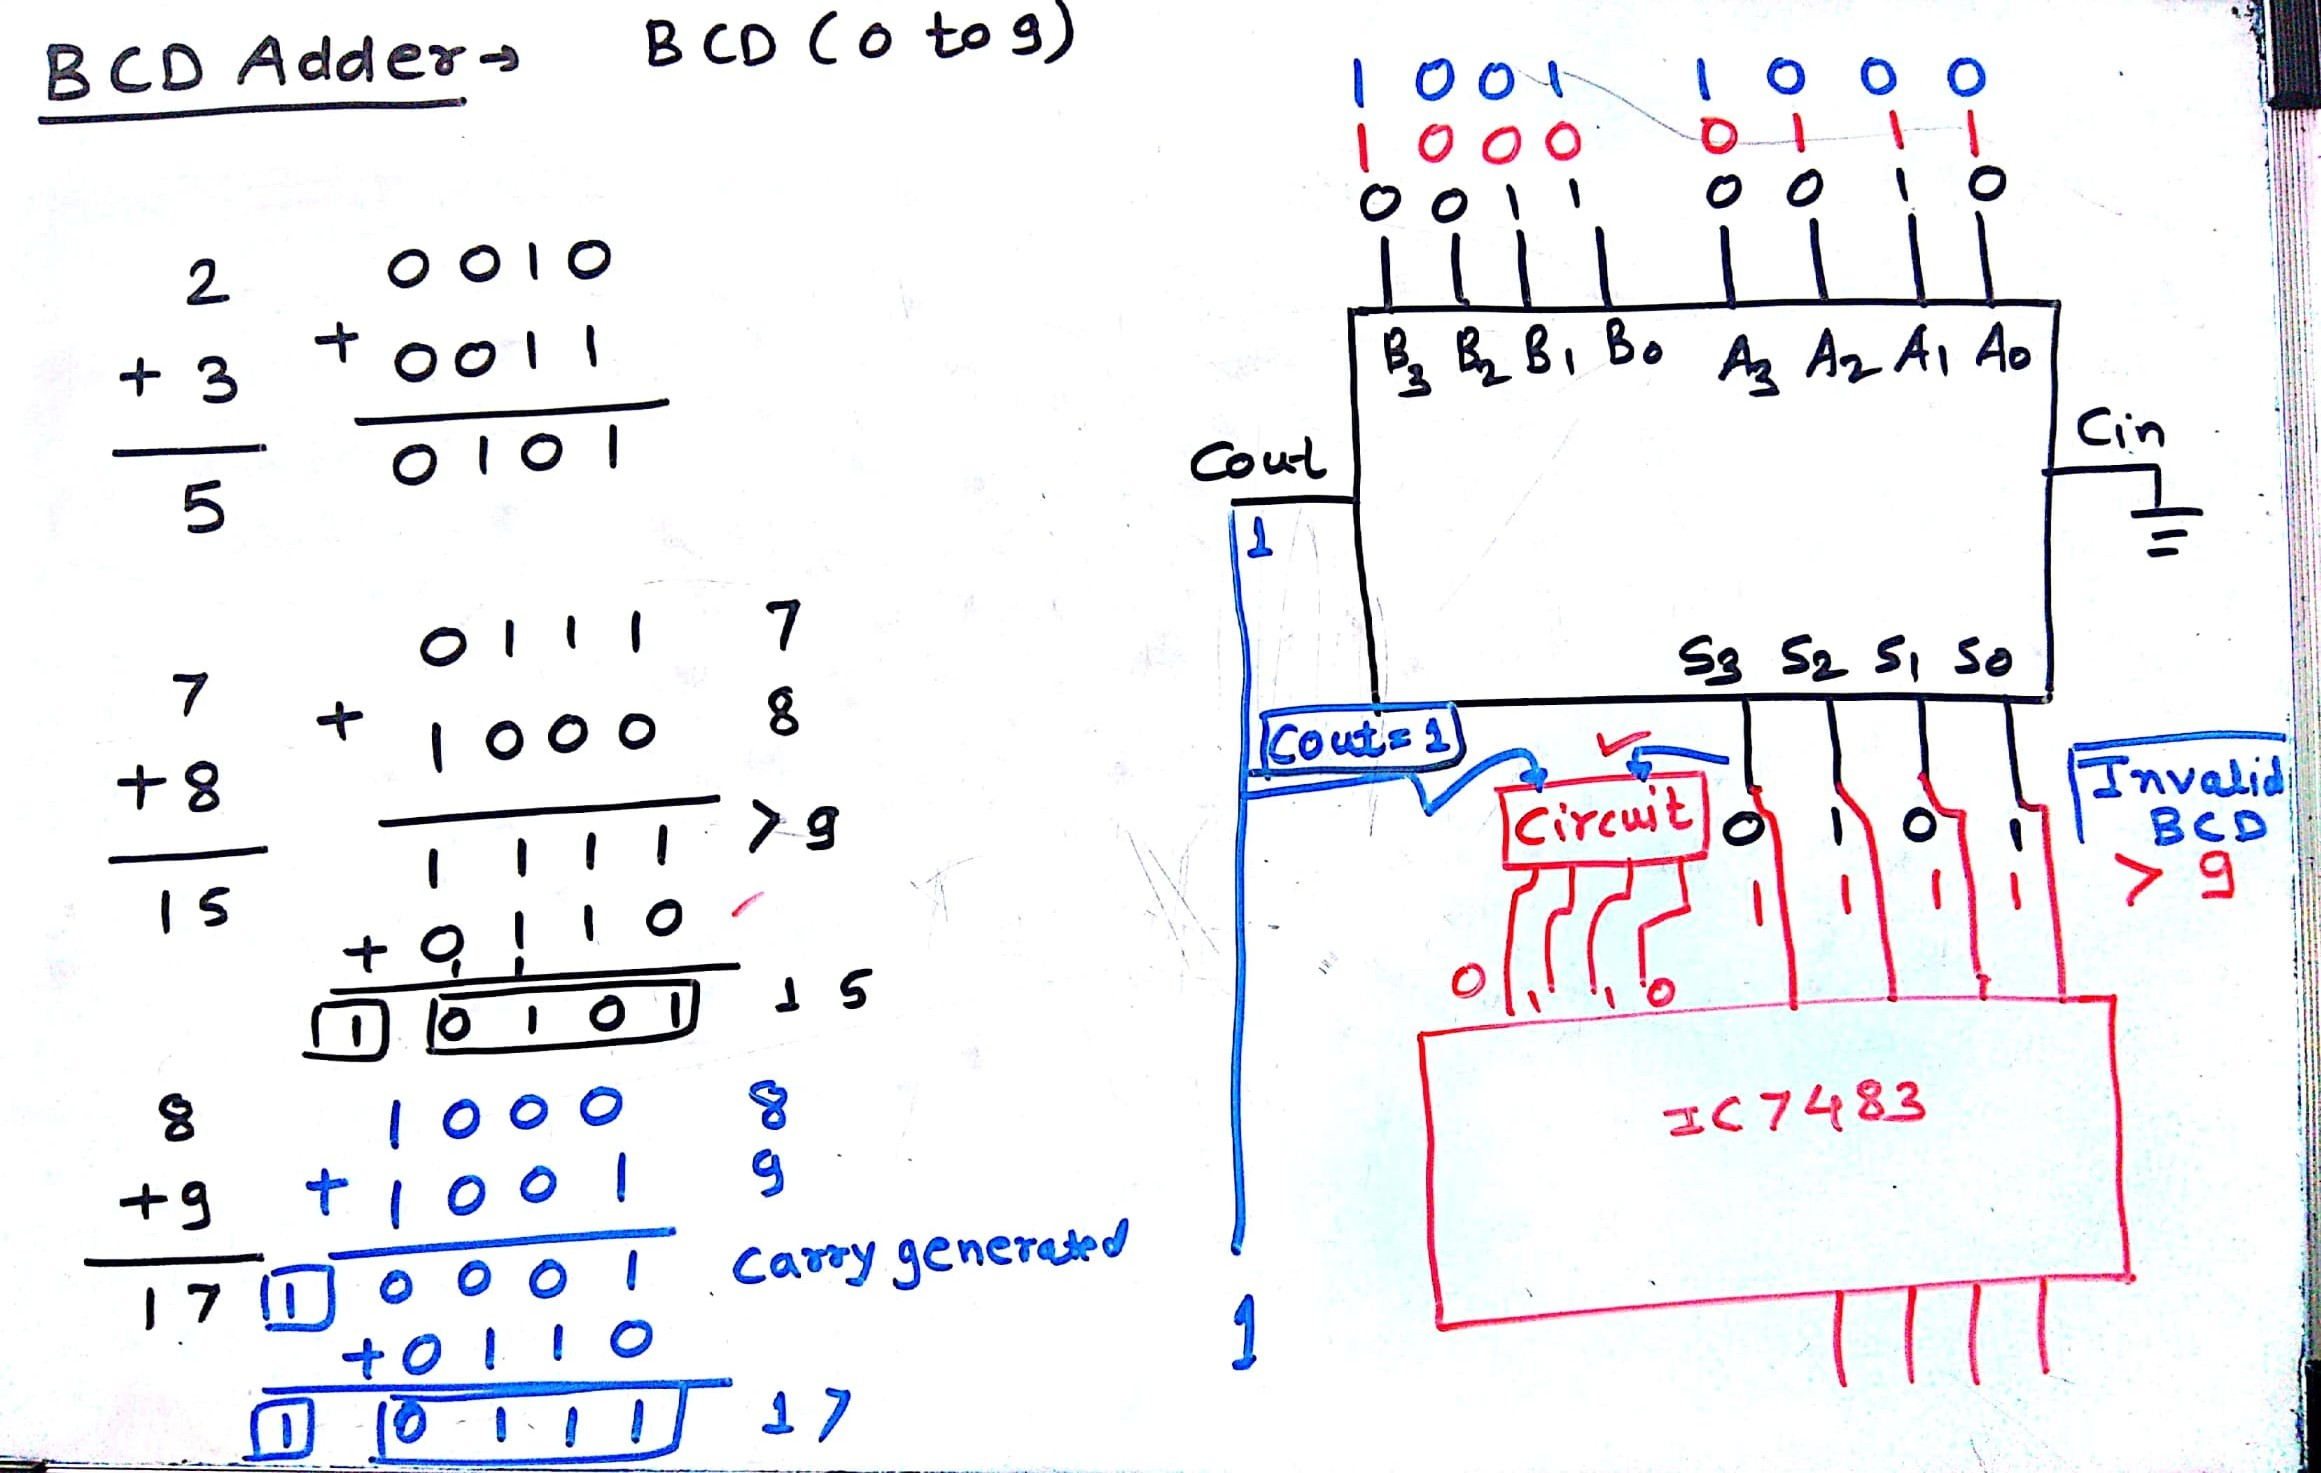 BCD Adder → BCD (0 to 9)
2 0 0 1 0
+ 3 + 0 0 1 1
5 0 1 0 1
0 1 1 1 7
7 + 1 0 0 0 8
+ 8
1 1 1 1 > 9
15 + 0 1 1 0
1 1
1 0 1 0 1 1 5
8 1 0 0 0 8
+ 9 + 1 0 0 1 9
17 1 0 0 0 1 Carry generated
+ 0 1 1 0
1 0 1 1 1 1 7
1 0 0 1 1 0 0 0
1 0 0 0 0 1 1 1
0 0 1 1 0 0 1 0
B3 B2 B1 B0 A3 A2 A1 A0
Cout Cin
1
S3 S2 S1 S0
Cout = 1 ✓
Circuit 0 1 0 1 Invalid
BCD
1 1 1 1 > 9
0 1 1 0
IC 7483
1